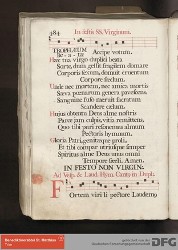 184 In festis SS. Virginum.
Accipe votum.
Hæc tua virgo duplici beata
Sorte, dum gestit fragilem domare
Corporis sexum, domuit cruentum
Corpore sæclum.
Unde nec mortem, nec amica mortis
Sæva pœnarum genera pavescens,
Sanguine fuso meruit sacratum
Scandere cælum.
Hujus obtentu Deus alme nostris
Parce jam culpis, vitia remittens,
Quo tibi puri resonemus almum
Pectoris hymnum.
Gloria Patri, genitæque proli,
Et tibi compar utriusque semper
Spiritus alme Deus unus omni
Tempore sæcli. Amen.
IN FESTO NON VIRGINIS.
Ad Vesp. & Laud. Hym.
Fortem virili pectore Laudemus
DFG